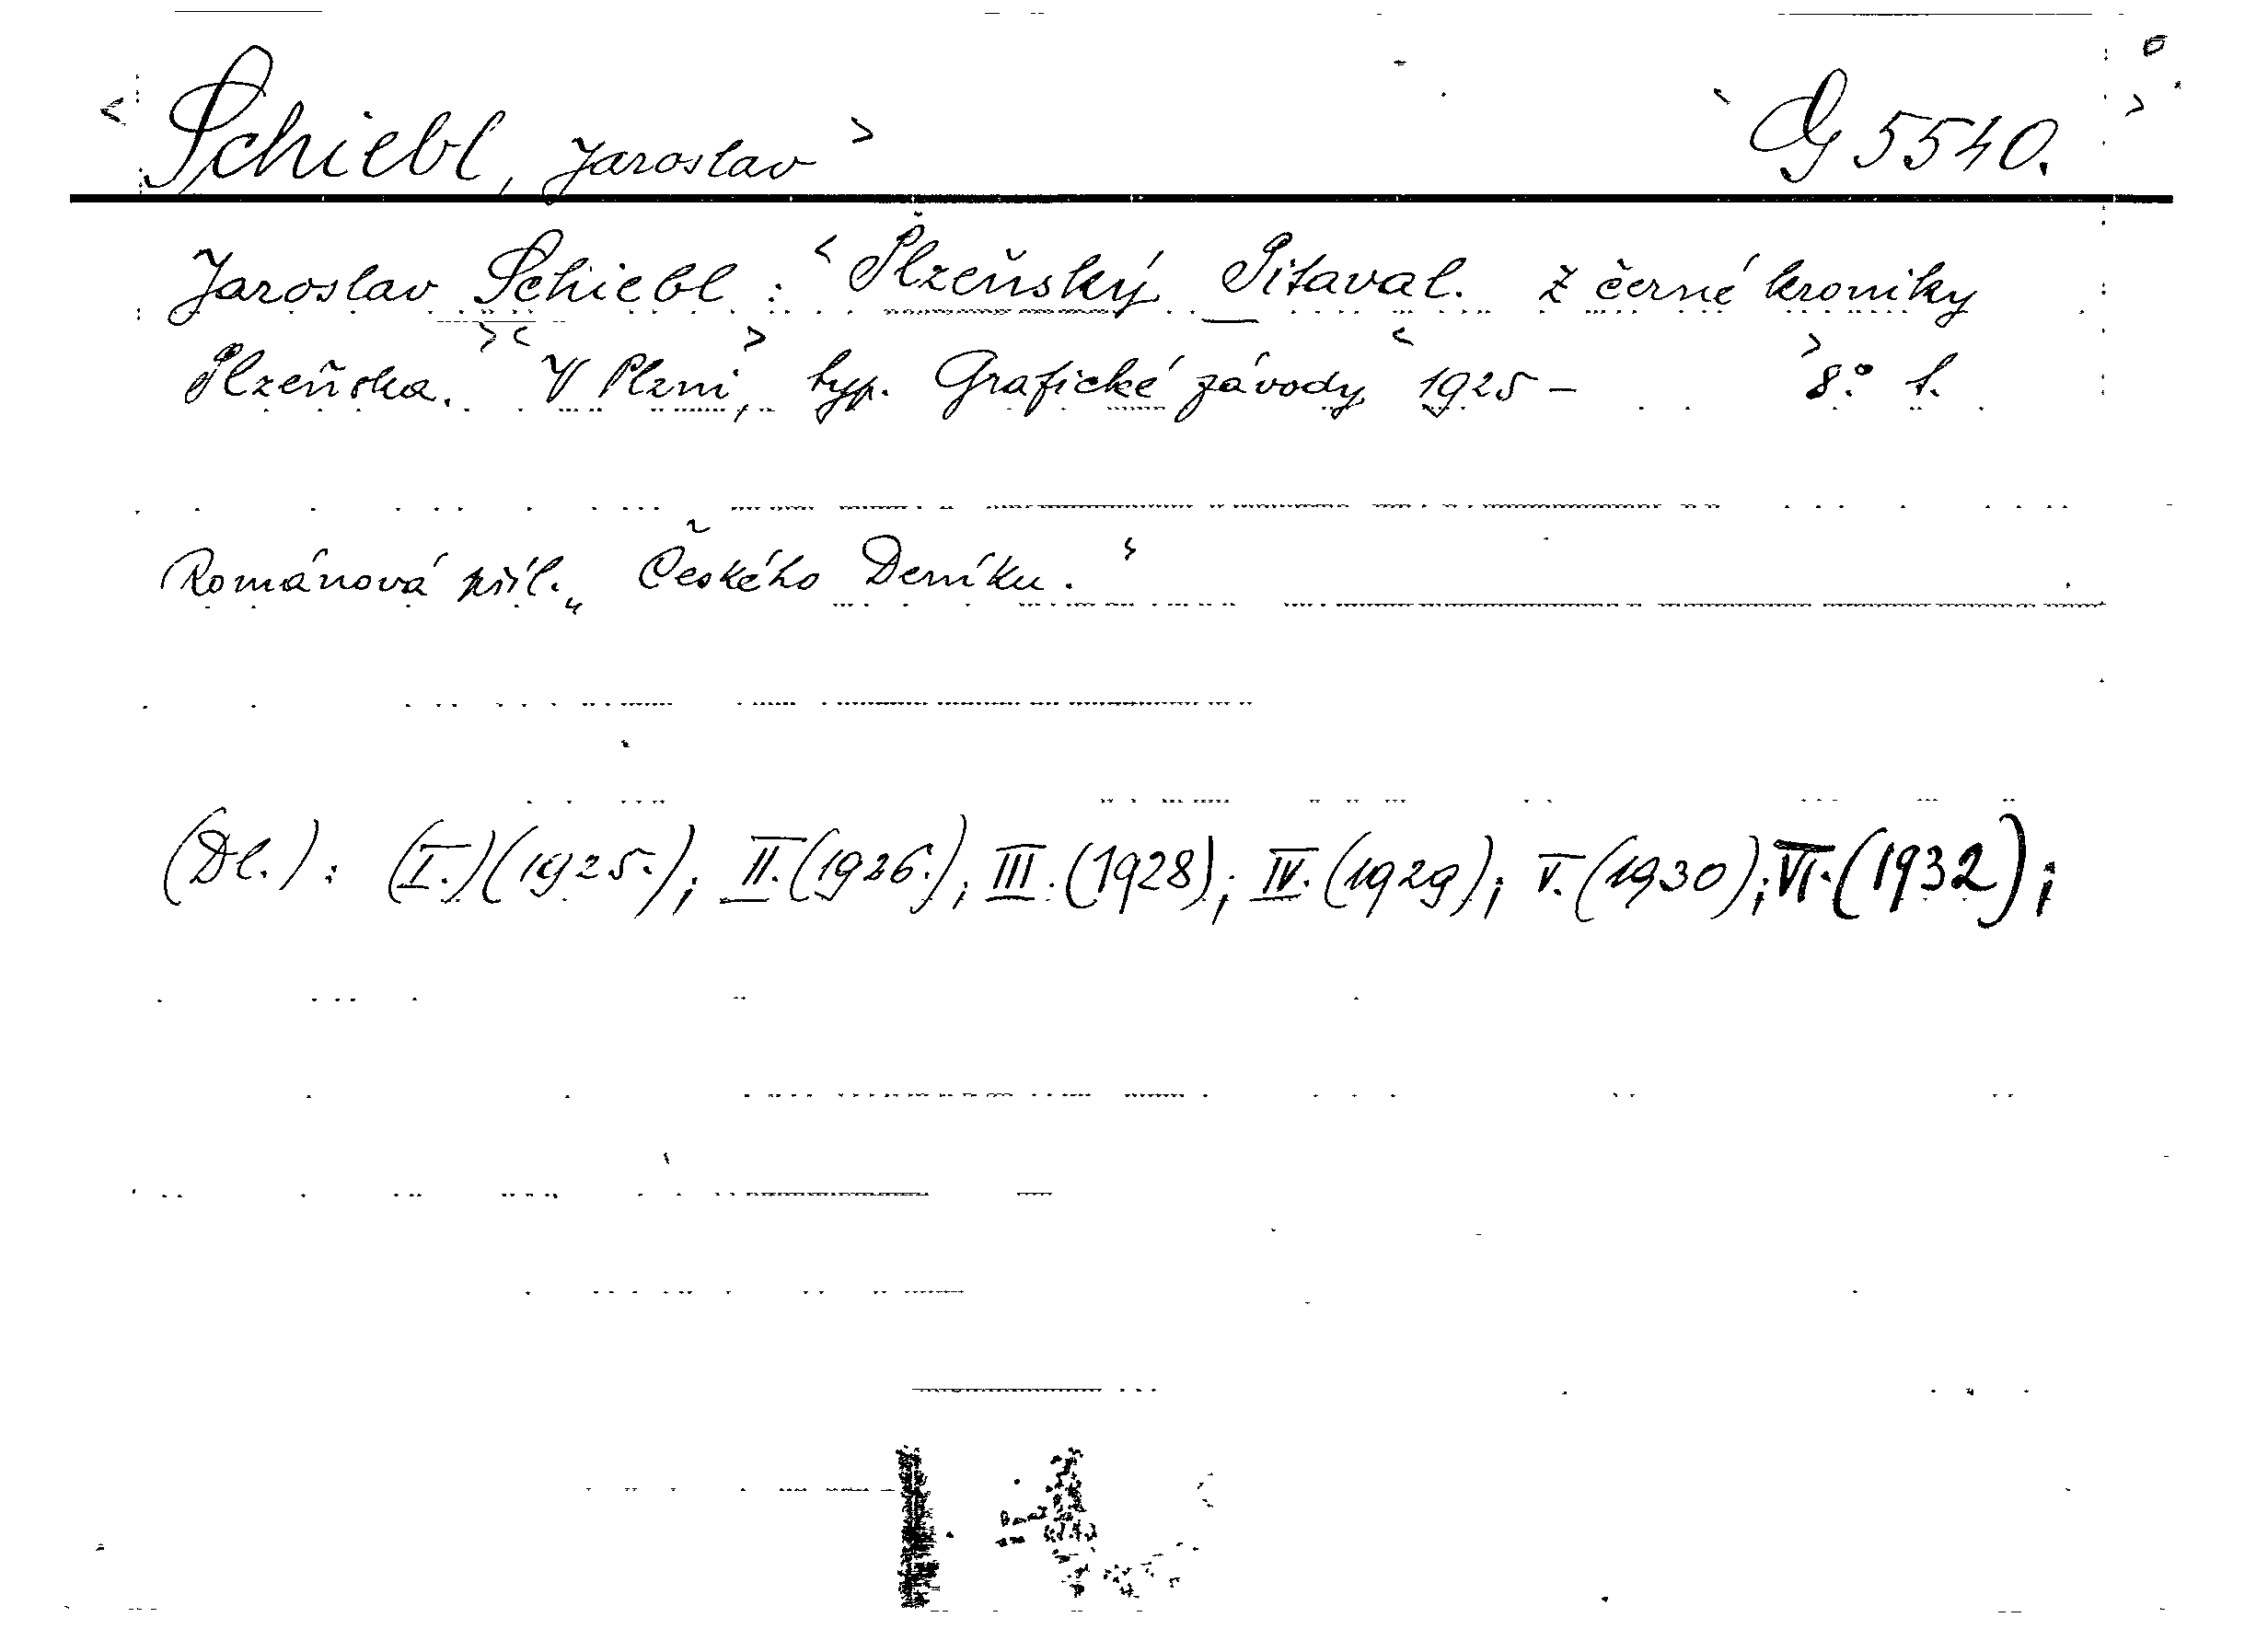 <Schiebl, Jaroslav> <G 5540.>
Jaroslav Schiebl: <Plzeňský Pitaval. Z černé kroniky
Plzeňska.> <V Plzni,> typ. Grafické závody <1925 - > 8° t.
Románová příl. „Českého Deníku.“
(Dl.): (I.)(1925.); II.(1926.); III.(1928); IV.(1929); V.(1930); VI.(1932);